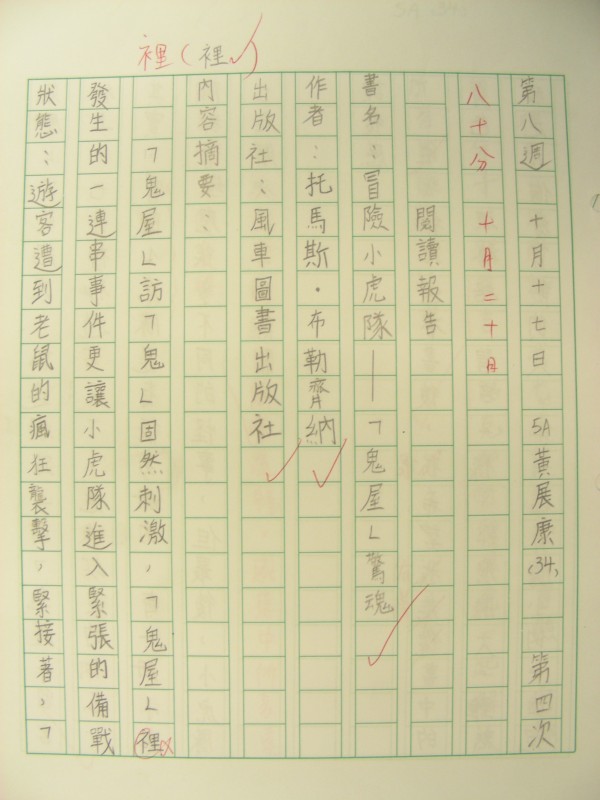 裡(裡✓)
第八週 十月十七日 5A黃展康(34) 第四次
八十分 十月二十日
閱讀報告
書名：冒險小虎隊—「鬼屋」驚魂
作者：托馬斯·布勒齊納
出版社：風車圖書出版社
內容摘要：
「鬼屋」訪「鬼」固然刺激，「鬼屋」裡
發生的一連串事件更讓小虎隊進入緊張的備戰
狀態：遊客遭到老鼠的瘋狂襲擊，緊接著，「